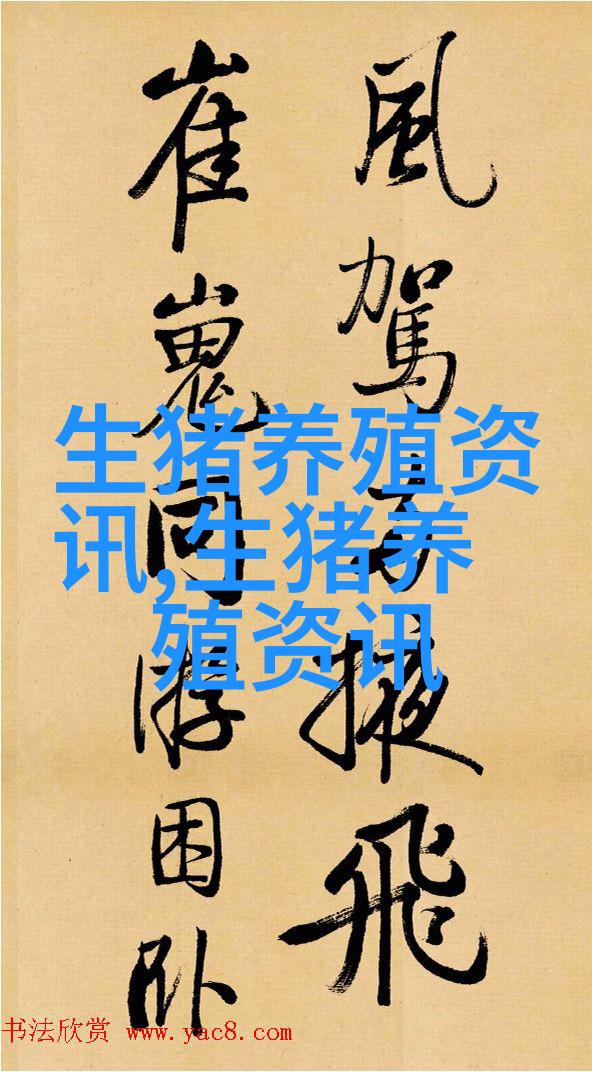 風駕掖飛
崔嵬同游困卧
生猪养殖资
讯,生猪养
殖资讯
书法欣赏 www.yac8.com